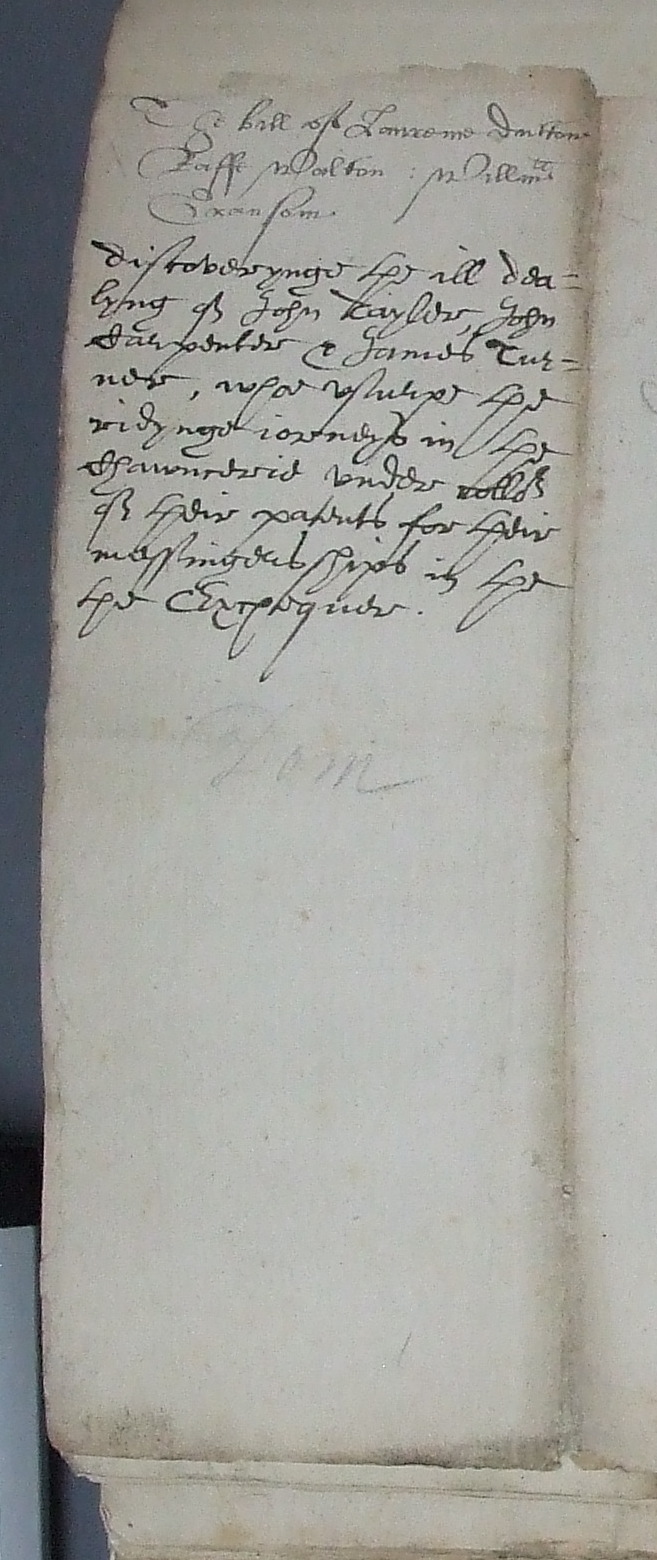 The bill of Lawrence Dutton
Raffe Walton : Willm̅
Transom
discoverynge the ill dea=
lyng of John Tayler, John
Carpenter & James Tur=
ner, whoe vsurpe the
ridynge iorneys in the
Chauncerie vnder
of their patents for their
messingersships in the
the Exchequer.
Dom